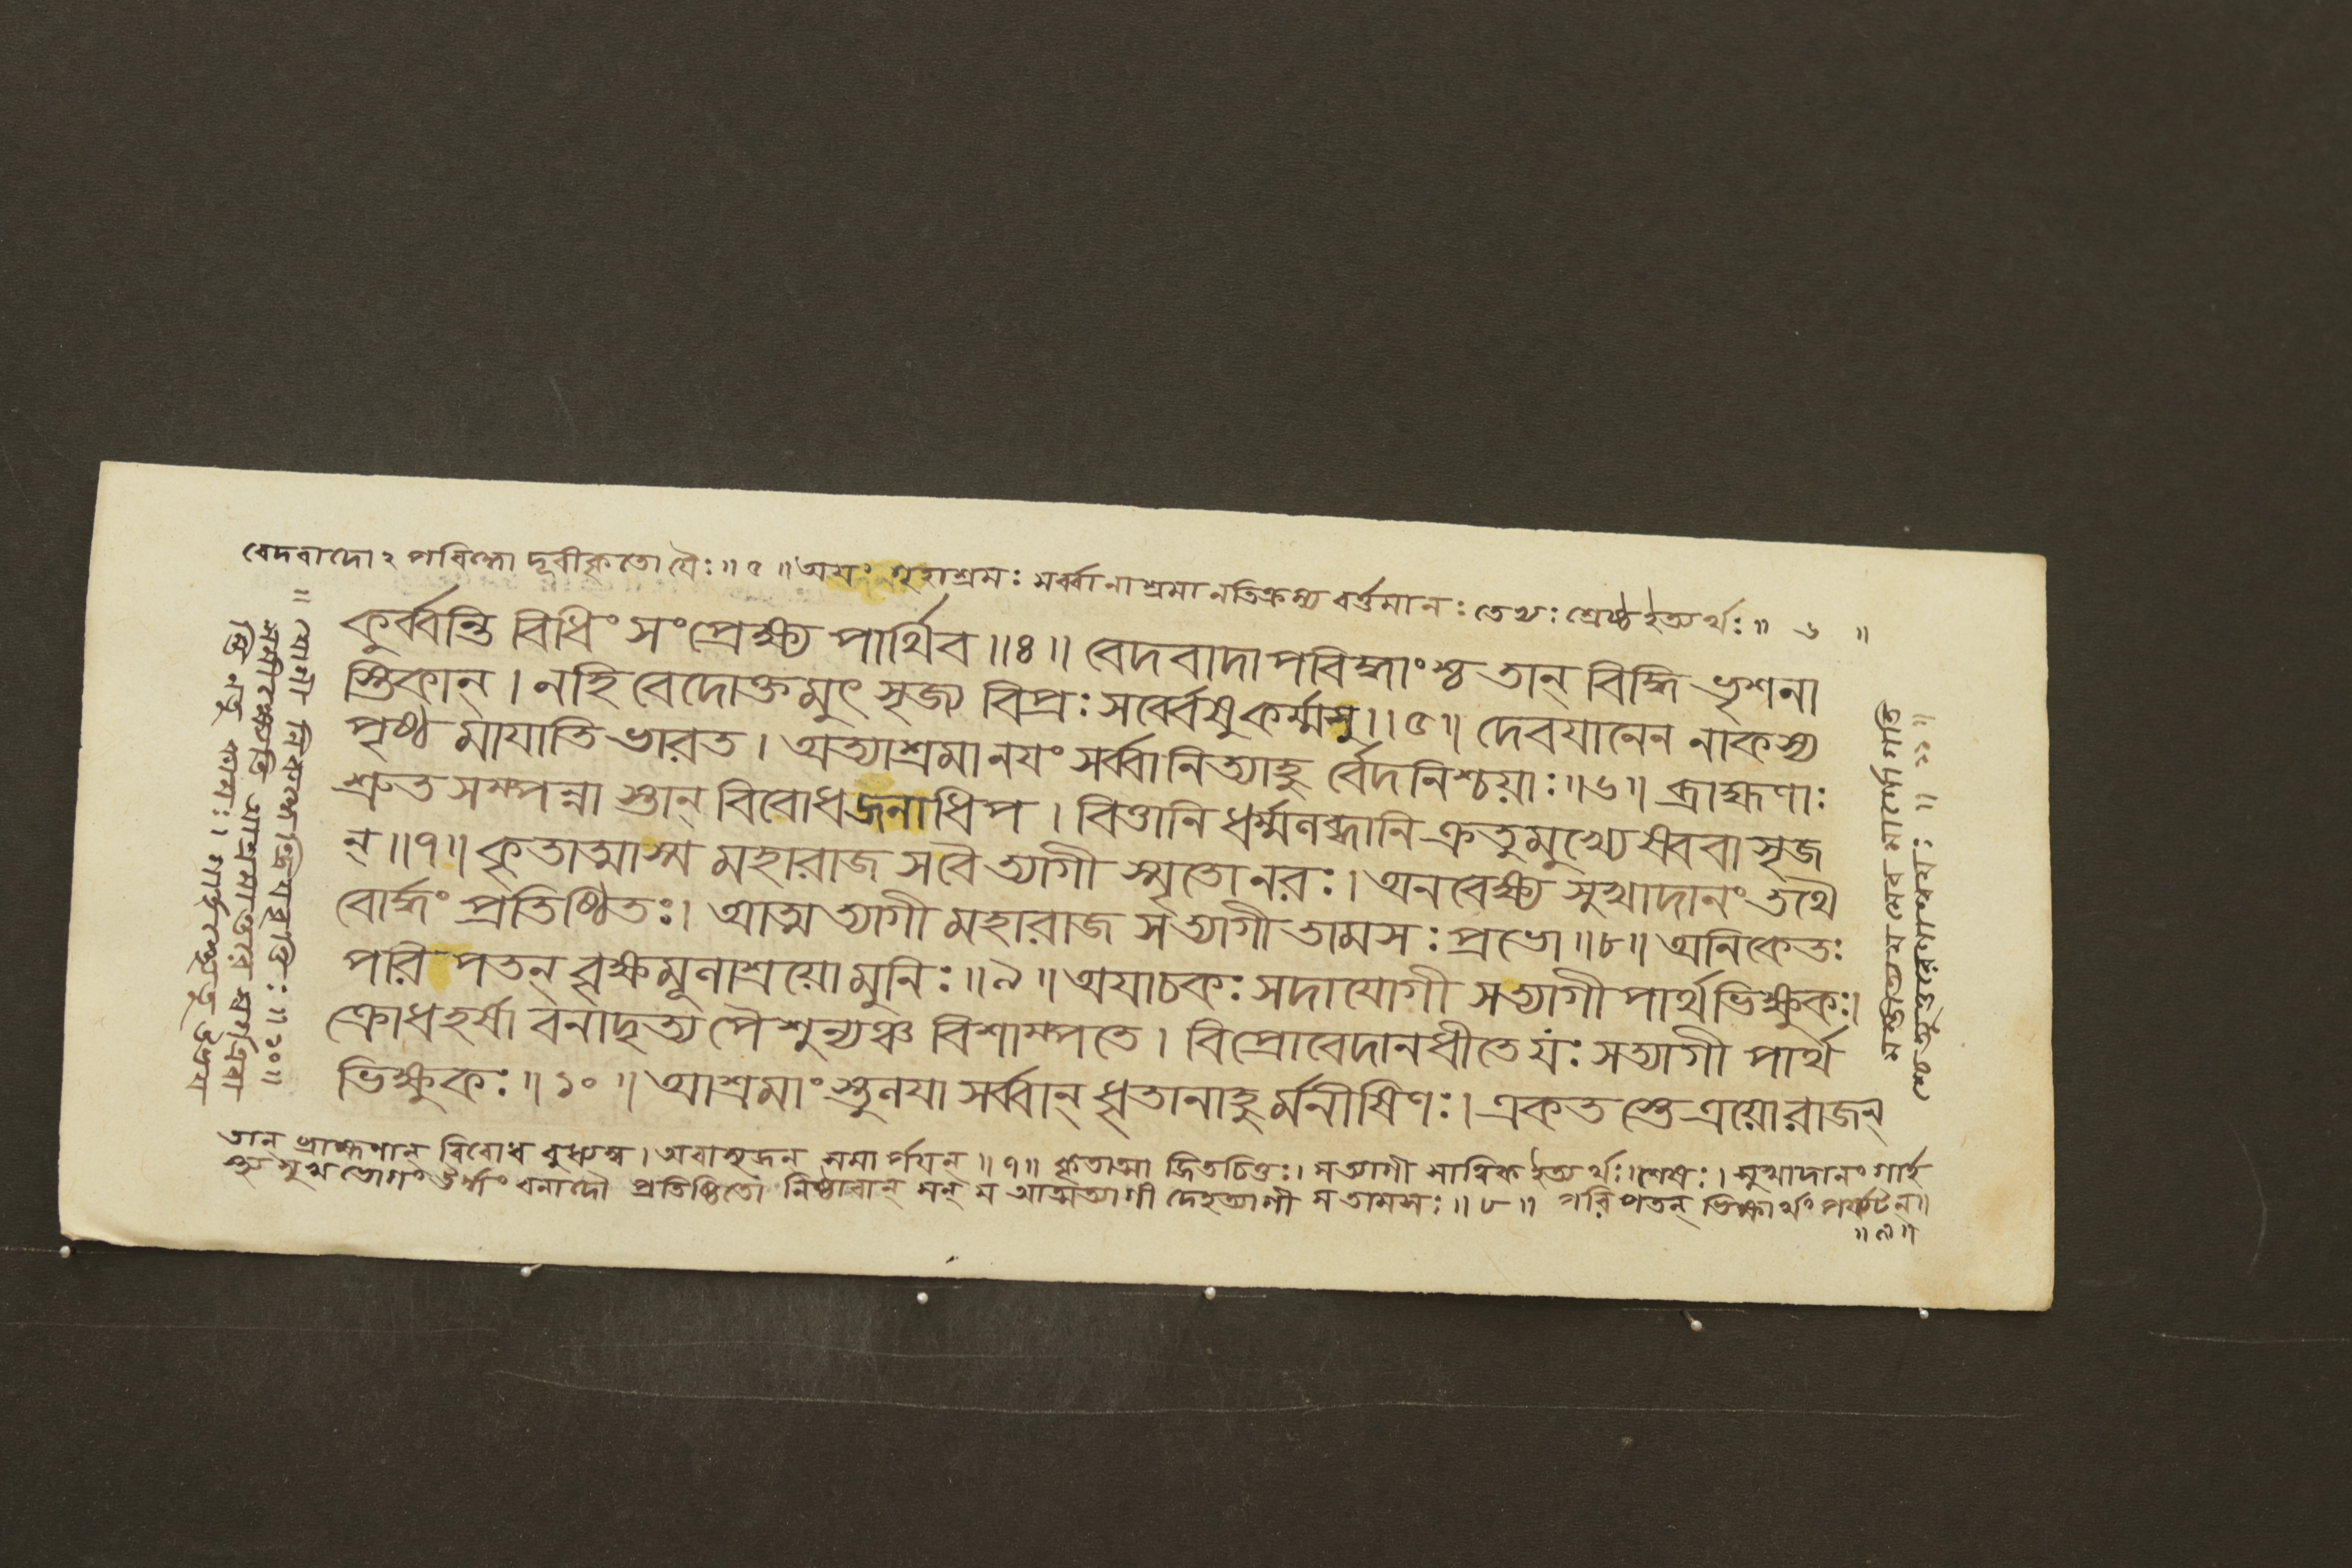 বেদবাদোঽপবিদ্ধো দূরীকৃতো যৈঃ॥৫॥ অয়ং গৃহাশ্রমঃ সর্ব্বানাশ্রমানতিক্রম্য বর্ত্তমানঃ তেভ্যঃ শ্রেষ্ঠ ইত্যর্থঃ॥ ৬ ॥
কুর্ব্বন্তি বিধিং সংপ্রেক্ষ্য পার্থিব॥৪॥ বেদবাদাপবিদ্ধাংশ্চ তান্ বিদ্ধি ভৃশনা
স্তিকান্। নহি বেদোক্তমুৎসৃজ্য বিপ্রঃ সর্ব্বেষুকর্ম্মসু॥৫॥ দেবযানেন নাকস্য
পৃষ্ঠমাযাতি ভারত। অত্যাশ্রমানয়ং সর্ব্বানিত্যাহু র্বেদনিশ্চয়াঃ॥৬॥ ব্রাহ্মণাঃ
শ্রুতসম্পন্না স্তান্ বিবোধজনাধিপ। বিত্তানি ধর্ম্মলব্ধানি ক্রতুমুখ্যেষ্ববাসৃজ
ন্॥৭॥ কৃতাত্মাস্ম মহারাজ সবৈ ত্যাগী স্মৃতো নরঃ। অনবেক্ষ্য সুখাদানং তথৈ
বোর্দ্ধং প্রতিষ্ঠিতঃ। আত্মত্যাগী মহারাজ সত্যাগী তামসঃ প্রভো॥৮॥ অনিকেতঃ
পরিপতন্ বৃক্ষমূলাশ্রয়ো মুনিঃ॥৯॥ অযাচকঃ সদাযোগী সত্যাগী পার্থভিক্ষুকঃ।
ক্রোধহর্ষা বনাদৃত্য পৈশুন্যঞ্চ বিশাম্পতে। বিপ্রোবেদানধীতে যঃ সত্যাগী পার্থ
ভিক্ষুকঃ॥১০॥ আশ্রমাংস্তুলয়া সর্ব্বান্ ধৃতানাহু র্মনীষিণঃ। একতস্তে ত্রয়োরাজন্
তান্ ব্রাহ্মণান্ বিবোধ বুধ্যস্ব। অবাসৃজন্ সমার্পয়ন্॥৭॥ কৃতাত্মা জিতচিত্তঃ। সত্যাগী সাত্ত্বিক ইত্যর্থঃ। শেষঃ। সুখাদানং গার্হ
স্থ্যসুখভোগং ঊর্দ্ধং বনাদৌ প্রতিষ্ঠিতো নিষ্ঠাবান্ সন্ স আত্মত্যাগী দেহত্যাগী স তামসঃ॥৮॥ পরিপতন্ ভিক্ষার্থং পর্য্যটন্॥
॥৯॥